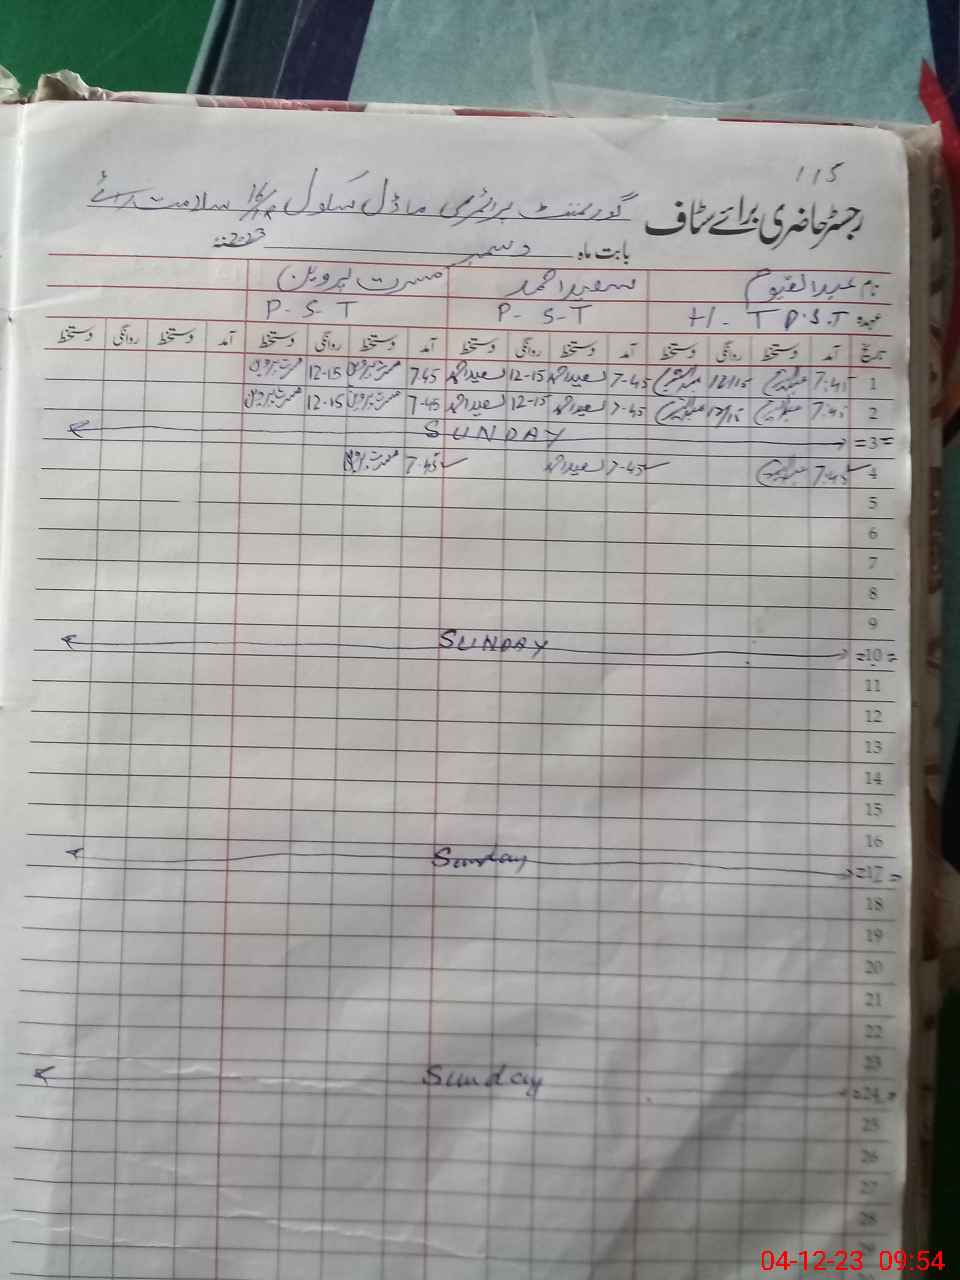 115
رجسٹر حاضری برائے سٹاف گورنمنٹ پرائمری ماڈل سکول 16/ سلامت رائے
بابت ماہ دسمبر 2023ء
نام عبدالقیوم سعید احمد مسرت پروین
عہدہ H-T P.S.T P-S-T P-S-T
تاریخ آمد دستخط روانگی دستخط آمد دستخط روانگی دستخط آمد دستخط روانگی دستخط آمد دستخط روانگی دستخط
1 7:45 12/15 7-45 سعید احمد 12-15 سعید احمد 7-45 مسرت پروین 12-15 مسرت پروین
2 7:45 12/15 7-45 سعید احمد 12-15 سعید احمد 7-45 مسرت پروین 12-15 مسرت پروین
=3= SUNDAY
4 7:45 7-45 سعید احمد 7-45 مسرت پروین
5
6
7
8
9
=10= SUNDAY
11
12
13
14
15
16
=17= Sunday
18
19
20
21
22
23
=24= Sunday
25
26
27
28
04-12-23 09:54